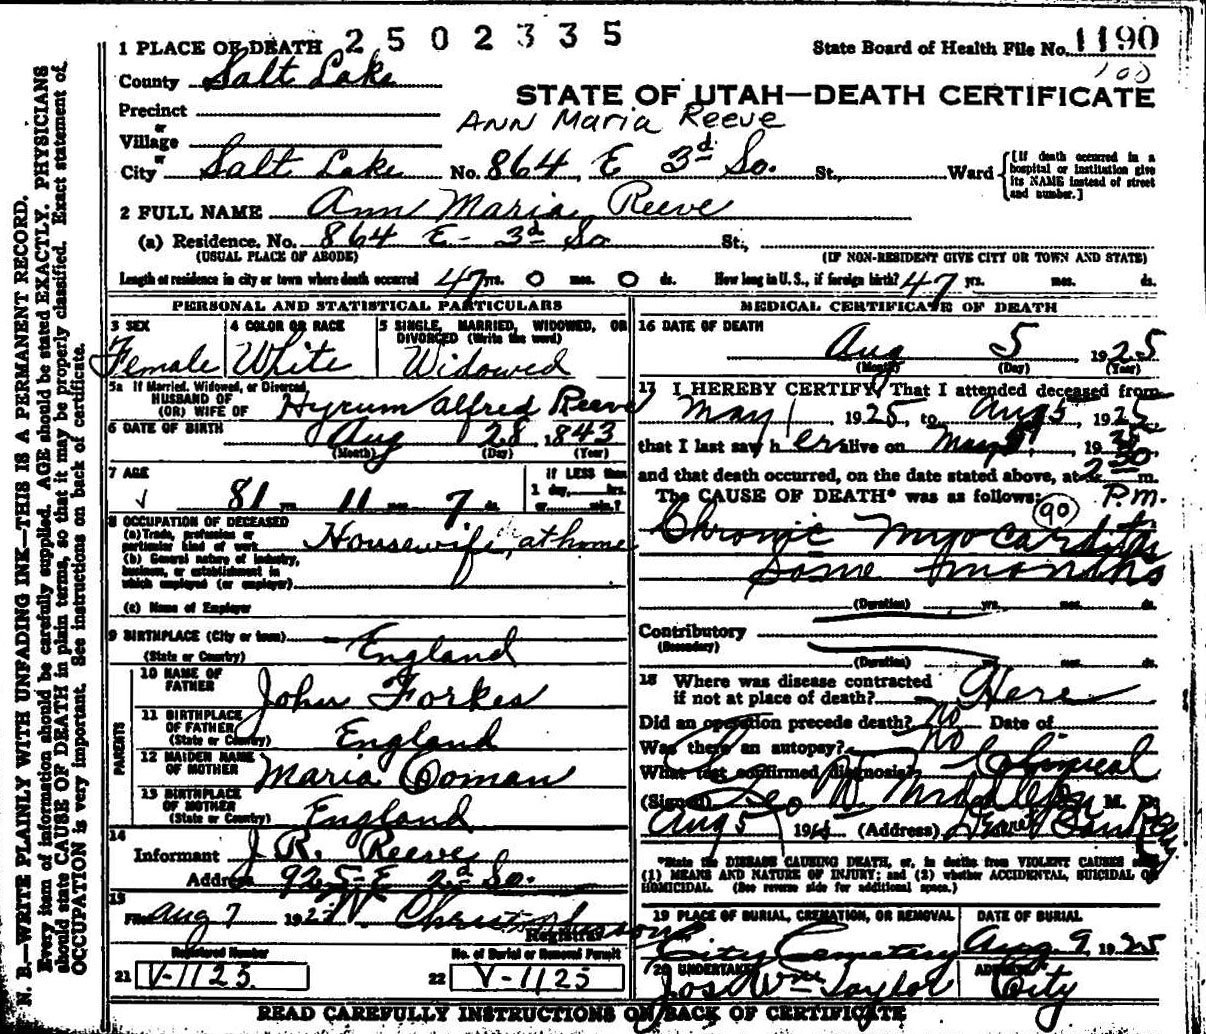 1 PLACE OF DEATH 2502335 State Board of Health File No. 1190
County Salt Lake 100
STATE OF UTAH—DEATH CERTIFICATE
Precinct
or
Ann Maria Reeve
Village
or
City Salt Lake No. 864 E 3d So. St., Ward [If death occurred in a hospital or institution give its NAME instead of street and number.]
2 FULL NAME Ann Maria Reeve
(a) Residence. No. 864 E- 3d So St.,
(USUAL PLACE OF ABODE) (IF NON-RESIDENT GIVE CITY OR TOWN AND STATE)
Length of residence in city or town where death occurred 47 yrs. 0 mos. 0 ds. How long in U.S., if foreign birth? 47 yrs. mos. ds.
PERSONAL AND STATISTICAL PARTICULARS
3 SEX
Female
4 COLOR OR RACE
White
5 SINGLE, MARRIED, WIDOWED, OR DIVORCED (Write the word)
Widowed
5a If Married, Widowed, or Divorced,
HUSBAND OF
(OR) WIFE OF Hyrum Alfred Reeve
6 DATE OF BIRTH Aug 28, 1843
(Month) (Day) (Year)
7 AGE
81 yrs. 11 mos. 7 ds.
If LESS than
1 day, hrs.
or min.?
8 OCCUPATION OF DECEASED
(a) Trade, profession or
particular kind of work Housewife, at home
(b) General nature of industry,
business, or establishment in
which employed (or employer)
(c) Name of Employer
9 BIRTHPLACE (City or town)
(State or Country) England
PARENTS
10 NAME OF
FATHER John Forkes
11 BIRTHPLACE
OF FATHER
(State or Country) England
12 MAIDEN NAME
OF MOTHER Maria Coman
13 BIRTHPLACE
OF MOTHER
(State or Country) England
14
Informant J. R. Reeve
Address 925-E 2d So.
15
Filed Aug 7 192
Registrar
Registered Number No. of Burial or Removal Permit
21 V-1125. 22 V-1125
MEDICAL CERTIFICATE OF DEATH
16 DATE OF DEATH
Aug 5, 1925
(Month) (Day) (Year)
17 I HEREBY CERTIFY, That I attended deceased from
May 1, 1925, to Aug 5, 1925
that I last saw her alive on 19
and that death occurred, on the date stated above, at 2 30 m.
The CAUSE OF DEATH* was as follows: P.M.
90
Chronic Myocarditis
Some months
(Duration) yrs. mos. ds.
Contributory
(Secondary)
(Duration) yrs. mos. ds.
18 Where was disease contracted
if not at place of death? Here
Did an operation precede death? No Date of
Was there an autopsy? No
What test confirmed diagnosis? Clinical
(Signed) Geo W. Middleton M. D.
Aug 5, 19 (Address)
*State the DISEASE CAUSING DEATH, or, in deaths from VIOLENT CAUSES state
(1) MEANS AND NATURE OF INJURY; and (2) whether ACCIDENTAL, SUICIDAL OR
HOMICIDAL. (See reverse side for additional space.)
19 PLACE OF BURIAL, CREMATION, OR REMOVAL
City Cemetery
DATE OF BURIAL
Aug. 9, 1925
20 UNDERTAKER
Jos Wm Taylor
ADDRESS
City
READ CAREFULLY INSTRUCTIONS ON BACK OF CERTIFICATE
N. B.—WRITE PLAINLY WITH UNFADING INK—THIS IS A PERMANENT RECORD.
Every item of information should be carefully supplied. AGE should be stated EXACTLY. PHYSICIANS
should state CAUSE OF DEATH in plain terms, so that it may be properly classified. Exact statement of
OCCUPATION is very important. See instructions on back of certificate.